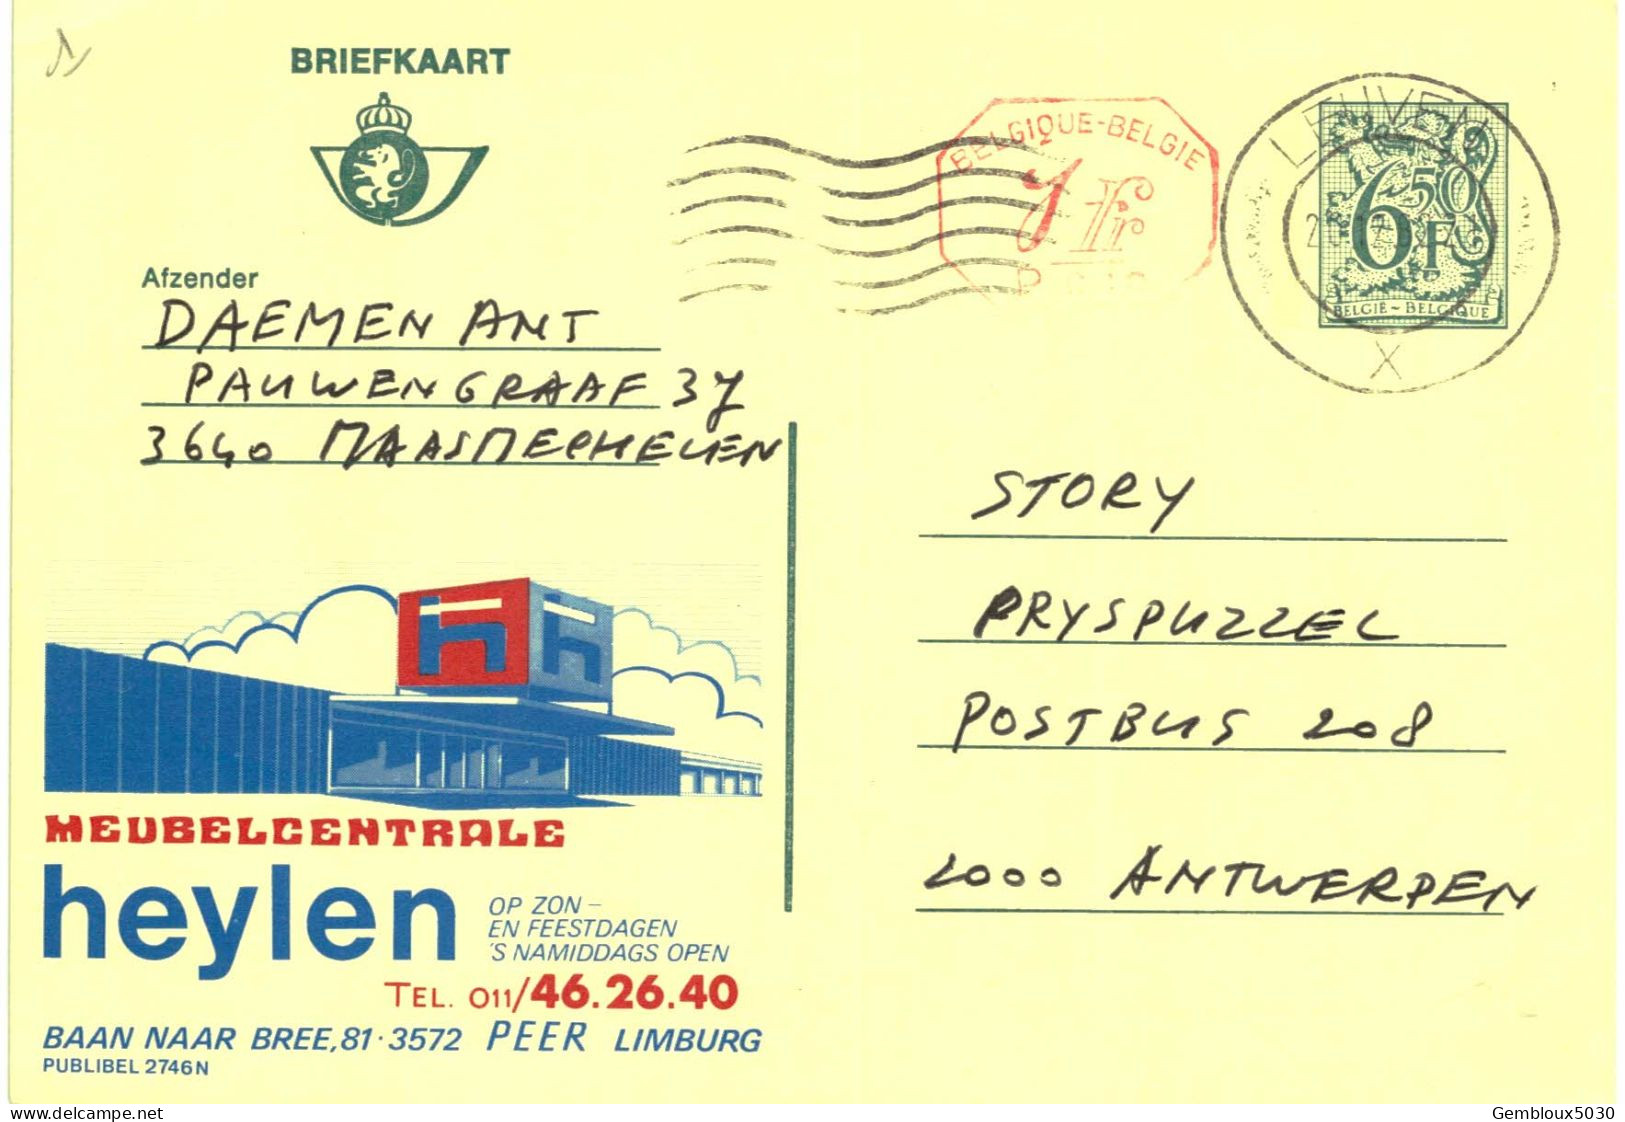 BRIEFKAART
BELGIQUE-BELGIE
Fr
LEUVEN
6 50 F
BELGIË ~ BELGIQUE
X
Afzender
DAEMEN ANT
PAUWENGRAAF 37
3640 MAASMECHELEN
STORY
PRYSPUZZEL
POSTBUS 208
2000 ANTWERPEN
MEUBELCENTRALE
heylen
OP ZON –
EN FEESTDAGEN
'S NAMIDDAGS OPEN
TEL. 011/46.26.40
BAAN NAAR BREE,81·3572 PEER LIMBURG
PUBLIBEL 2746N
www.delcampe.net
Gembloux5030